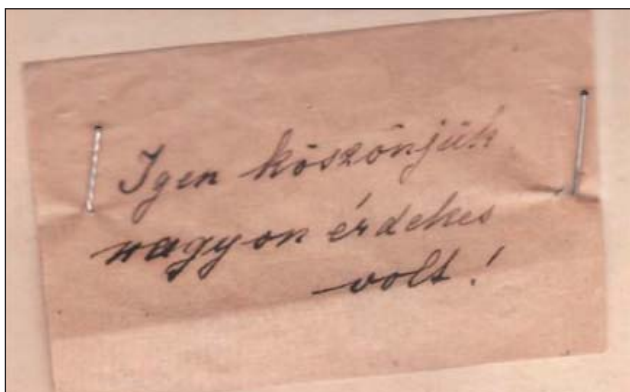 Igen köszönjük
nagyon érdekes
volt!